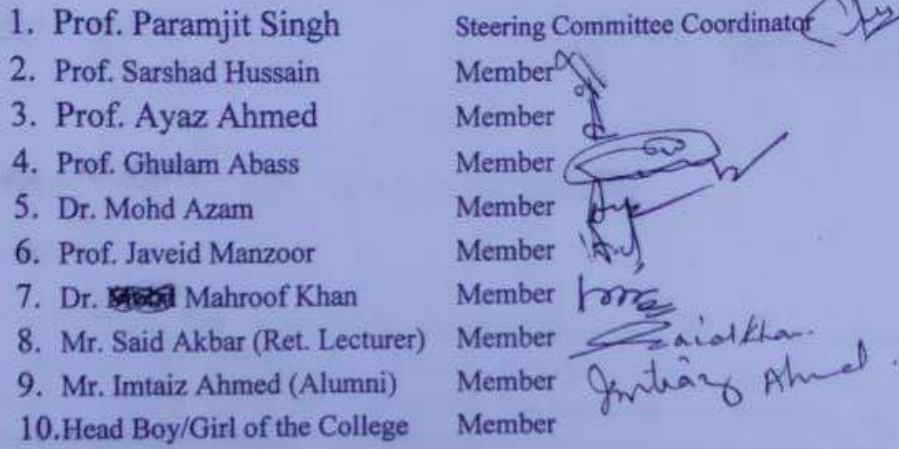 1. Prof. Paramjit Singh Steering Committee Coordinator
2. Prof. Sarshad Hussain Member
3. Prof. Ayaz Ahmed Member
4. Prof. Ghulam Abass Member
5. Dr. Mohd Azam Member
6. Prof. Javeid Manzoor Member
7. Dr. Mahroof Khan Member
8. Mr. Said Akbar (Ret. Lecturer) Member Saidkhan.
9. Mr. Imtaiz Ahmed (Alumni) Member Imtiaz Ahmed.
10.Head Boy/Girl of the College Member